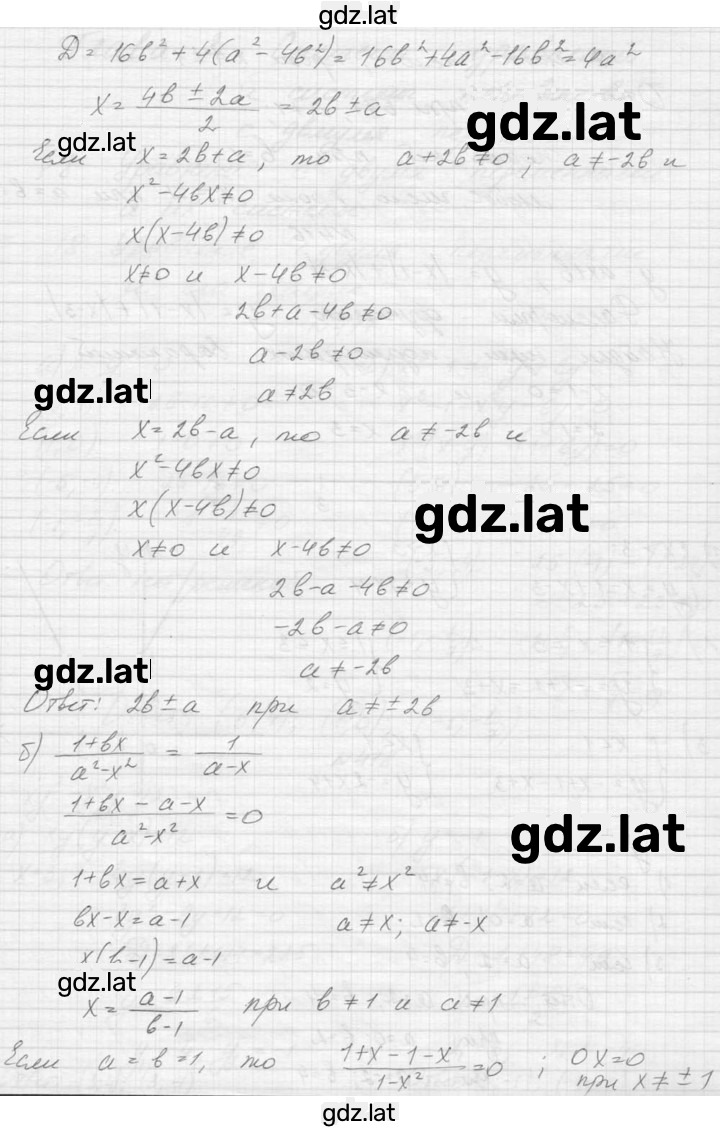 gdz.lat
D = 16b² + 4(a² - 4b²) = 16b² + 4a² - 16b² = 4a²
x = (4b ± 2a)/2 = 2b ± a
gdz.lat
gdz.lat
Если x = 2b + a, то a + 2b ≠ 0; a ≠ -2b и
x² - 4bx ≠ 0
x(x - 4b) ≠ 0
x ≠ 0 и x - 4b ≠ 0
2b + a - 4b ≠ 0
a - 2b ≠ 0
gdz.lat
a ≠ 2b
Если x = 2b - a, то a ≠ -2b и
x² - 4bx ≠ 0
x(x - 4b) ≠ 0
gdz.lat
x ≠ 0 и x - 4b ≠ 0
2b - a - 4b ≠ 0
-2b - a ≠ 0
gdz.lat
a ≠ -2b
Ответ: 2b ± a при a ≠ ± 2b
б) (1 + bx)/(a² - x²) = 1/(a - x)
(1 + bx - a - x)/(a² - x²) = 0
gdz.lat
1 + bx = a + x и a² ≠ x²
bx - x = a - 1 a ≠ x; a ≠ -x
x(b - 1) = a - 1
gdz.lat
x = (a - 1)/(b - 1) при b ≠ 1 и a ≠ 1
Если a = b = 1, то (1 + x - 1 - x)/(1 - x²) = 0; 0x = 0
при x ≠ ± 1
gdz.lat